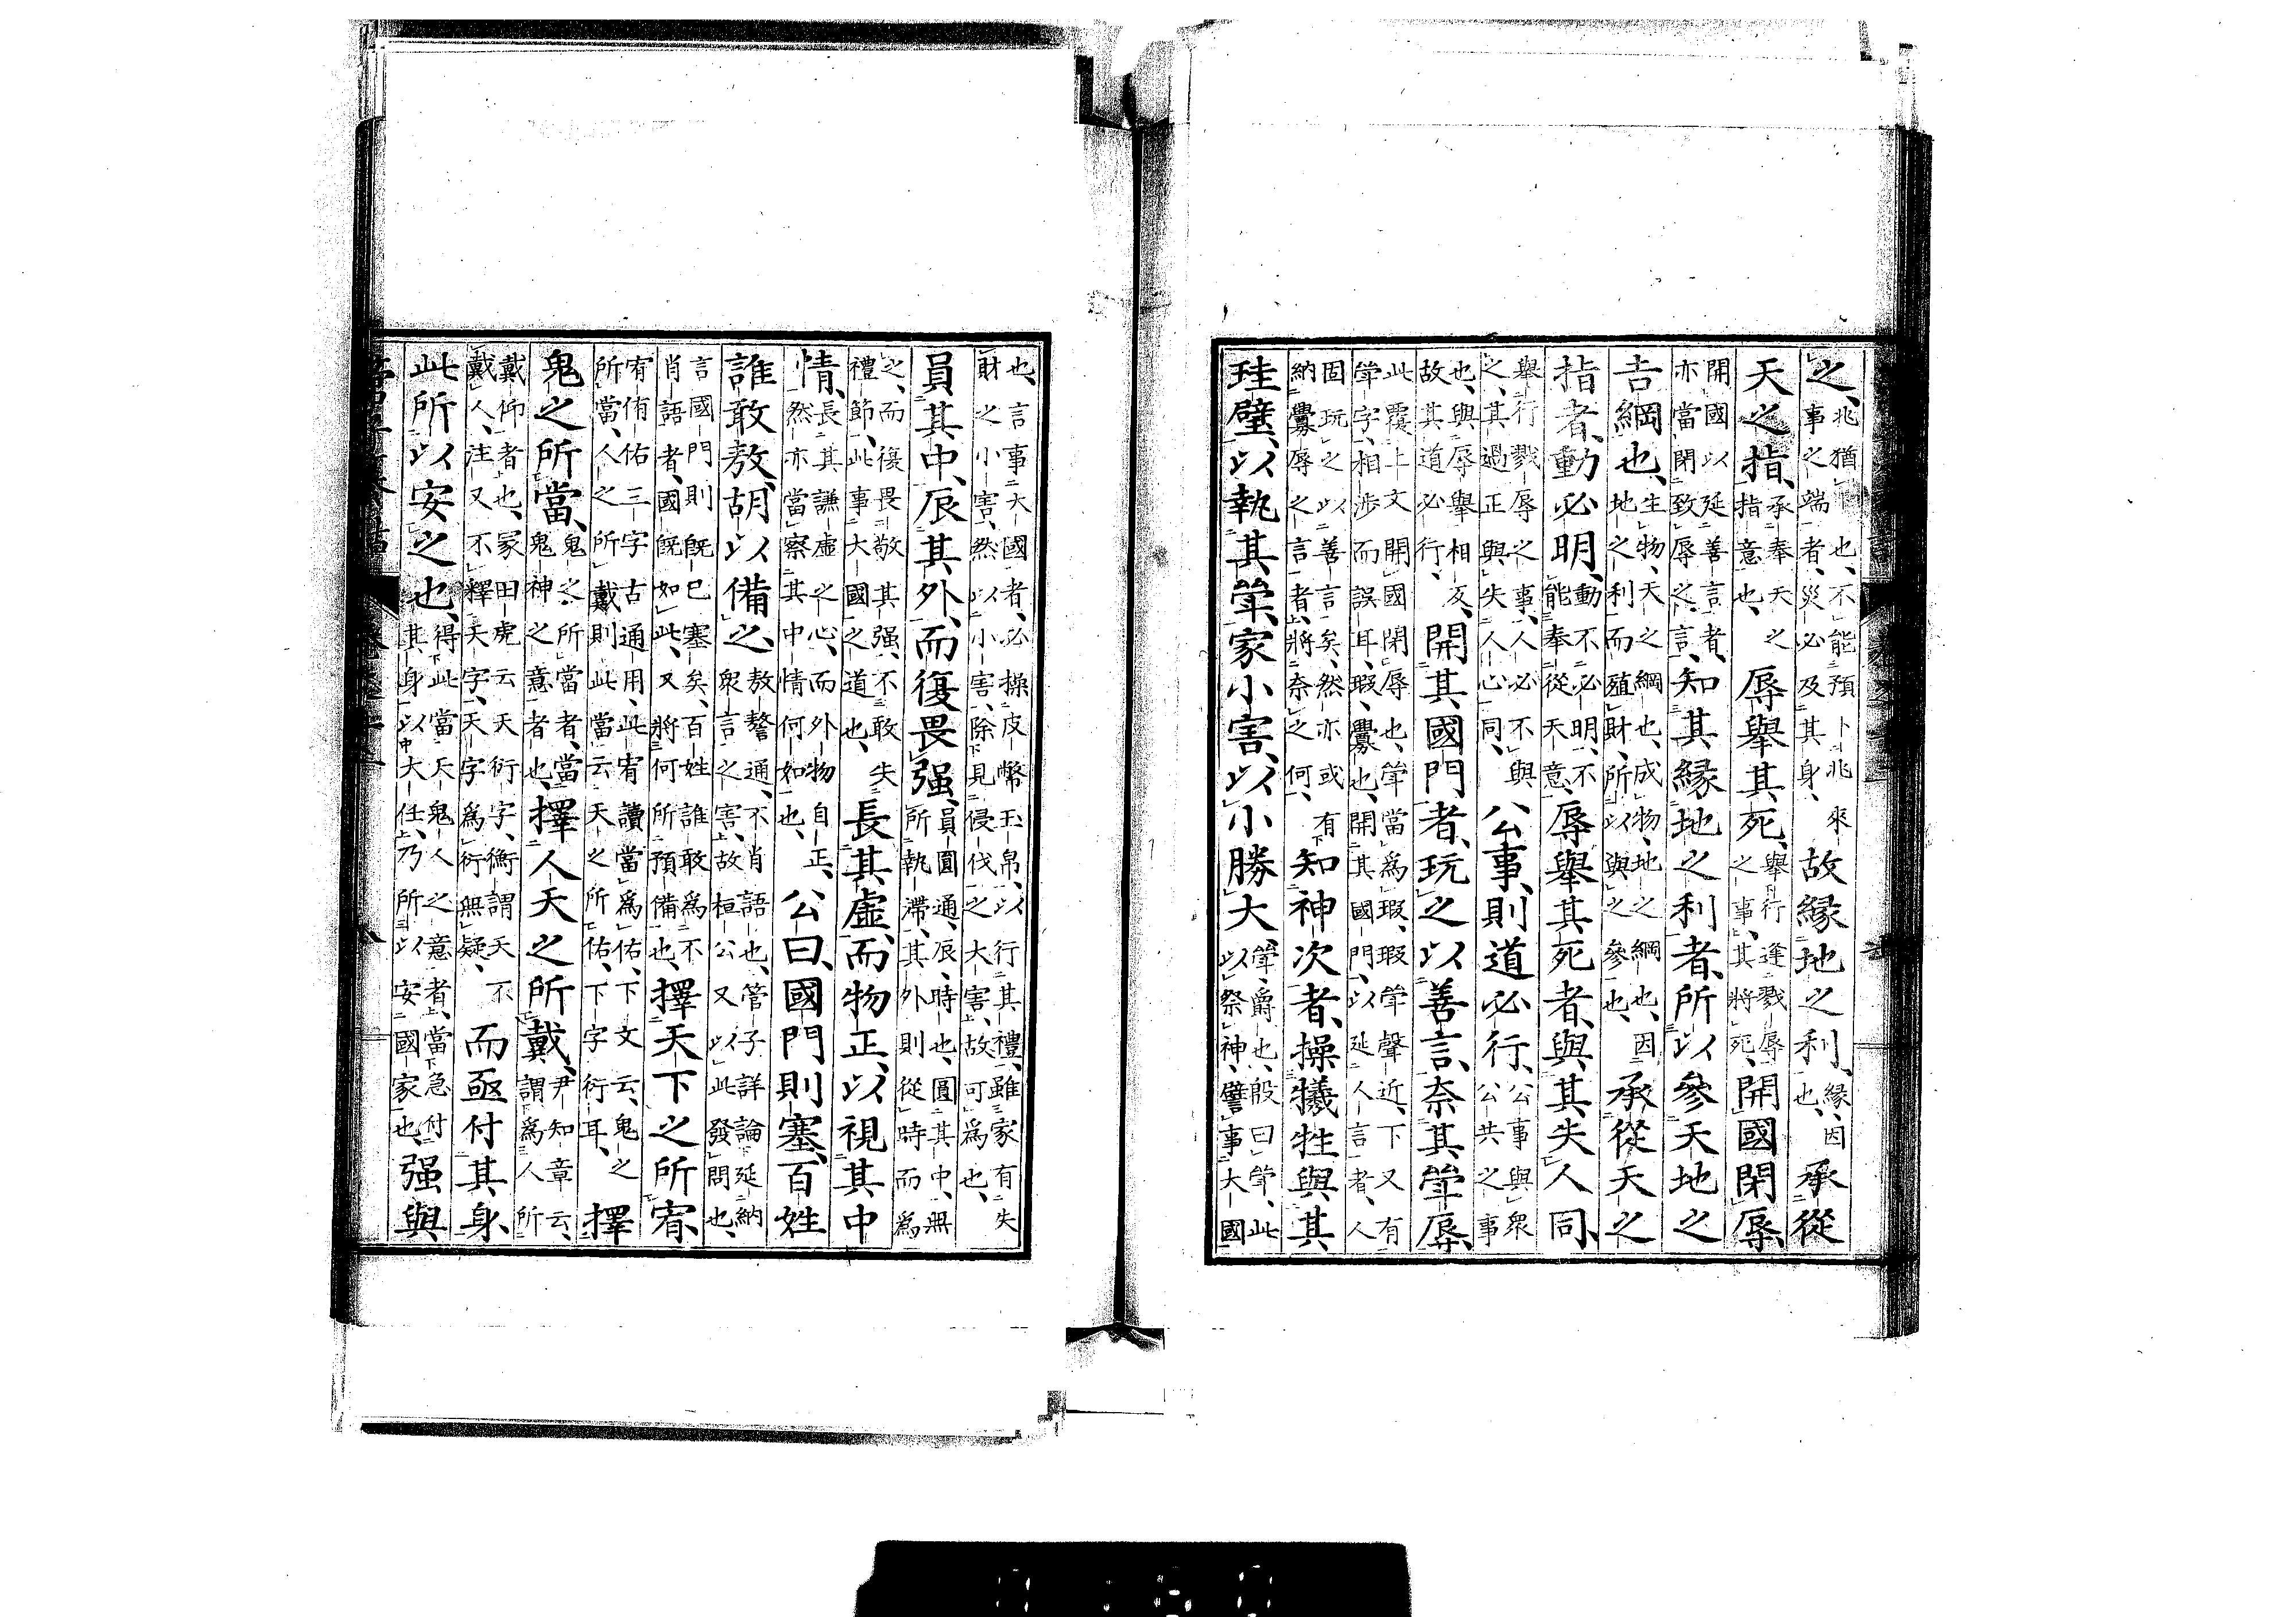 之、兆猶也、不能預卜兆來事之端者、災必及其身、故縁地之利、縁、因也、承從
天之指、承奉天之指意也、辱舉其死、舉行逢戮辱之事、其將死、開國閉辱、
開國以延善言者、亦當閉致辱之言、知其縁地之利者、所以參天地之
吉綱也、生物、天之綱也、成物、地之綱也、因地之利而殖財、所以與之參也、承從天之
指者、動必明、動不必明、不能奉從天意、辱舉其死者、與其失人同、
舉行戮辱之事、人必不與之、其過正與失人心同、公事、則道必行、公事與衆公共之事
也、與辱舉相反、故其道必行、開其國門者、玩之以善言、奈其斝辱、
此覆上文開國閉辱也、斝當爲瑕、瑕斝聲近、下又有斝字、相渉而誤耳、瑕、釁也、開其國門、以延人言者、人
固玩之以善言矣、然亦或有納釁辱之言者、將奈之何、知神次者、操犧牲與其
珪璧、以執其斝、家小害、以小勝大、斝、爵也、殷曰斝、此以祭神、譬事大國
也、言事大國者、必操皮幣玉帛、以行其禮、雖家有失財之小害、然以小害、除見侵伐之大害、故可爲也、
員其中、辰其外、而復畏强、員、圓通、辰、時也、圓其中、無所執滯、其外則從時而爲
之、而復畏敬其强、不敢失禮節、此事大國之道也、長其虛、而物正、以視其中
情、長其謙虛之心、而外物自正、然亦當察其中情何如也、公曰、國門則塞、百姓
誰敢敖、胡以備之、敖謷通、不肖語也、管子詳論延納衆言之害、故桓公又以此發問也、
言國門則既已塞矣、百姓誰敢爲不肖語者、國既如此、又將何所預備也、擇天下之所宥、
宥侑佑三字古通用、此宥讀當爲佑、下文云、鬼之所當、人之所戴、則此當云天之所佑、下字衍耳、擇
鬼之所當、鬼之所當者、當鬼神之意者也、擇人天之所戴、尹知章云、謂爲人所
戴仰者也、冢田虎云、天衍字、衡謂天戴人、注又不釋天字、天字爲衍無疑、不而亟付其身、
此所以安之也、得此當天鬼人之意者、當急付其身以大任、乃所以安國家也、强與